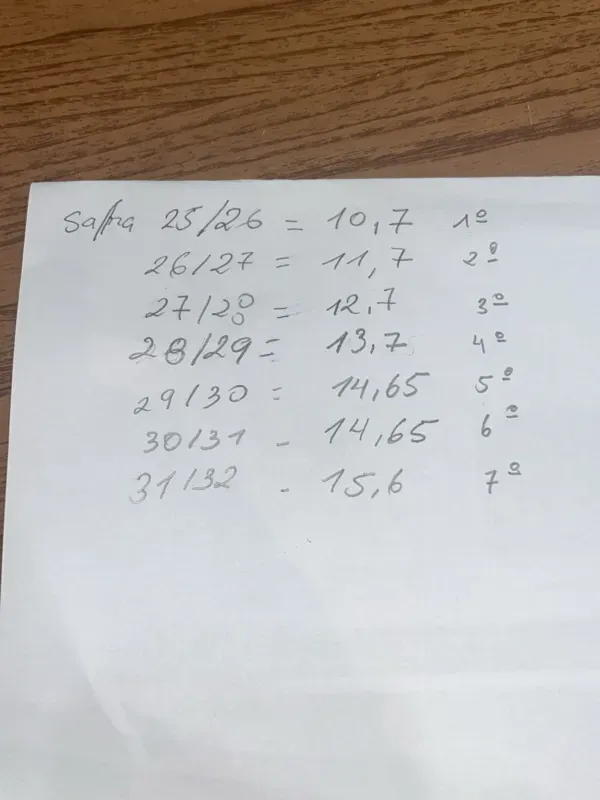 Safra 25/26 = 10,7 1º
26/27 = 11,7 2º
27/28 = 12,7 3º
28/29 = 13,7 4º
29/30 = 14,65 5º
30/31 - 14,65 6º
31/32 - 15,6 7º